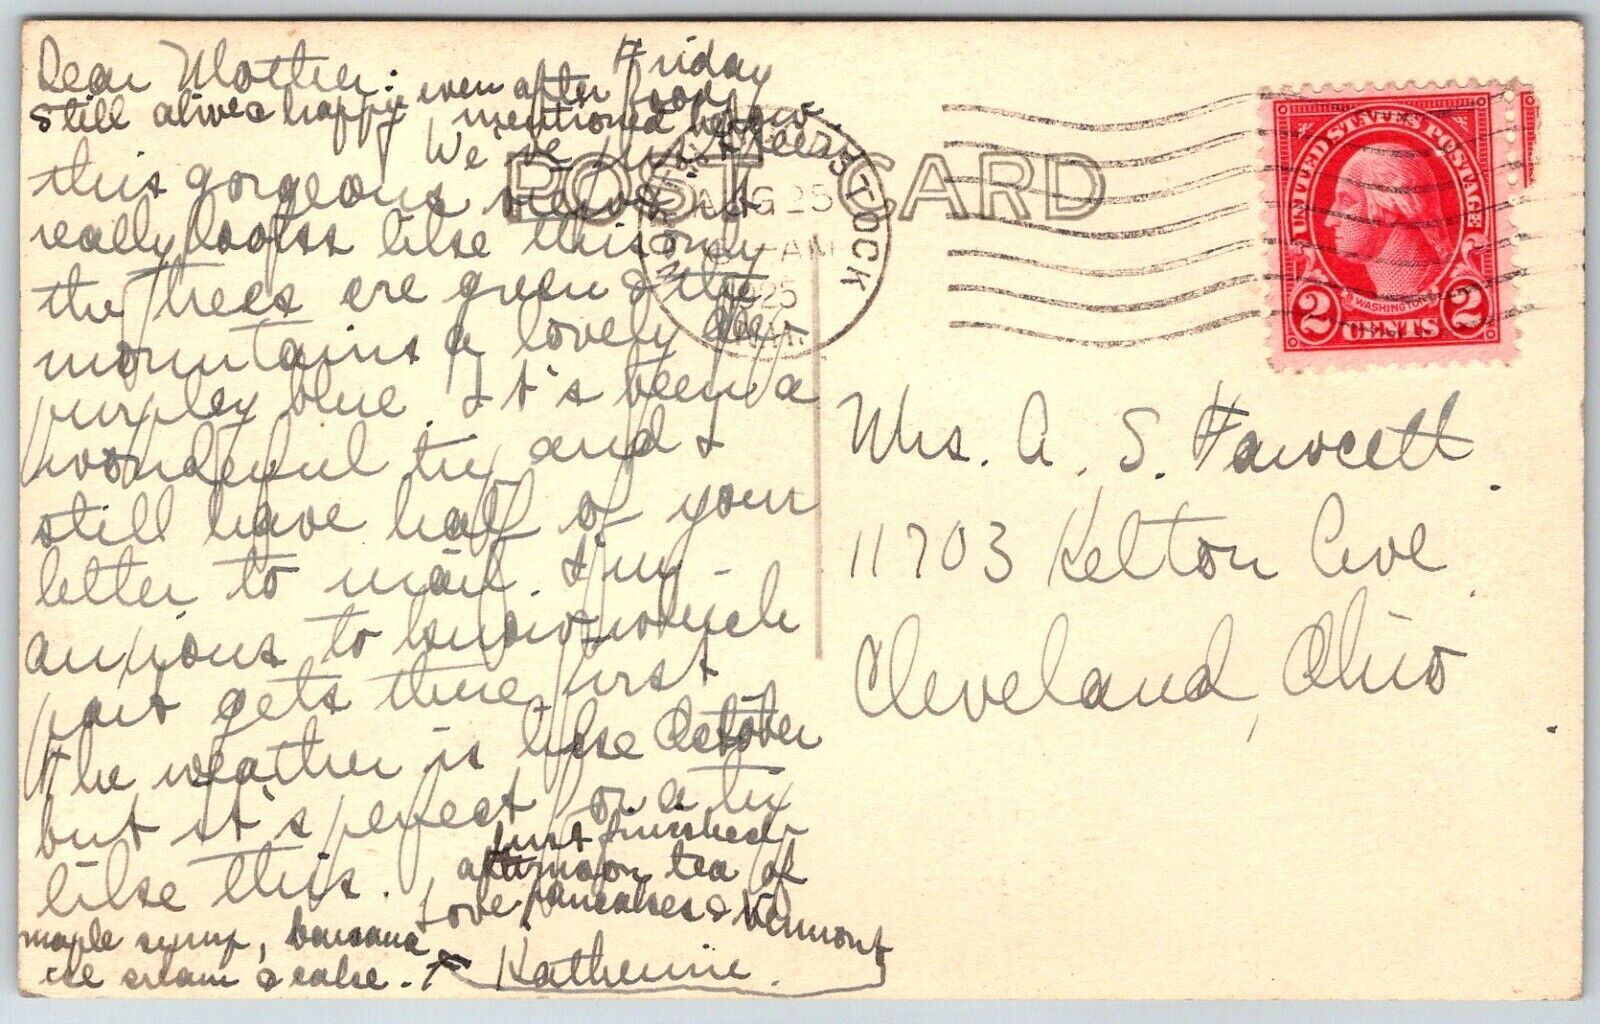 Dear Mother: Friday
Still alive & happy even after food
mentioned below.
We've just been
this gorgeous it
really looks like this only
the trees are green & the
mountains a lovely deep
purpley blue. It's been a
wonderful trip and I
still have half of your
letter to mail. I'm
anxious to know which
part gets there first
The weather is like October
but it's perfect for a trip
like this.
Love,
Katherine.
Just finished
afternoon tea of
pancakes & Vermont
maple syrup, banana
ice cream & cake.
POST CARD
STOCK
AUG 25
AM
1925
N.H.
UNITED STATES POSTAGE
WASHINGTON
2 CENTS 2
Mrs. A. S. Fawcett.
11703 Kelton Ave.
Cleveland, Ohio.